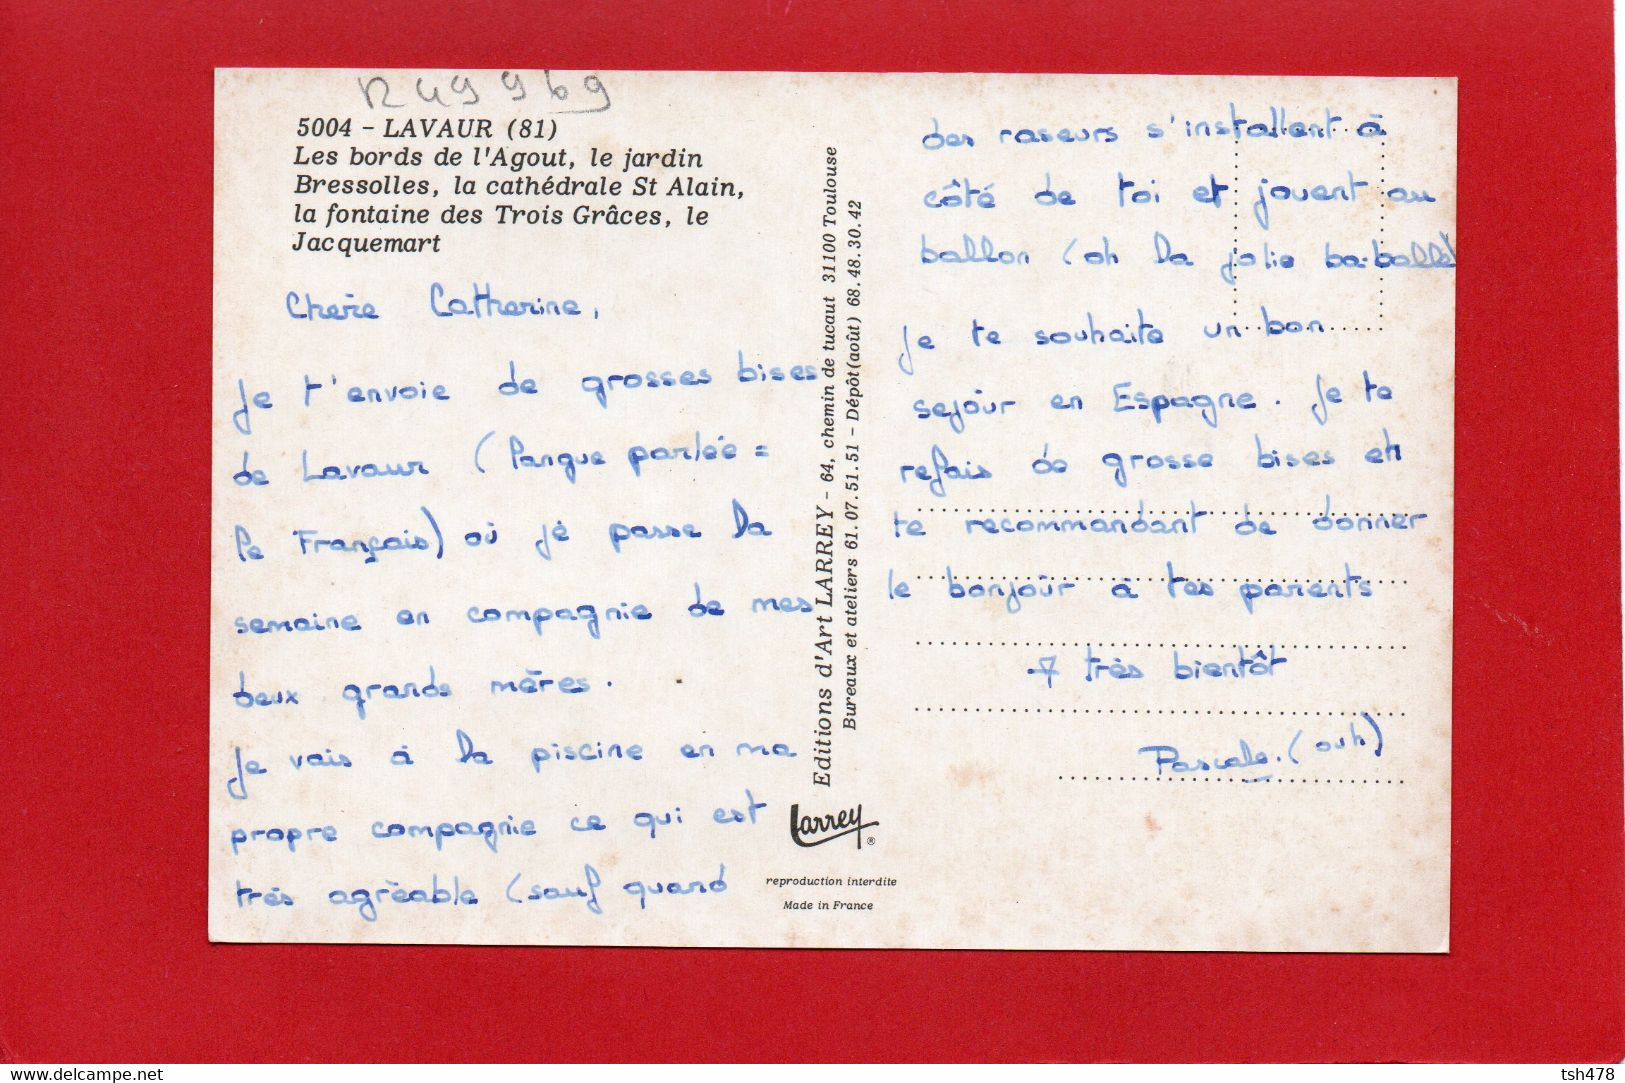 R49969
5004 - LAVAUR (81)
Les bords de l'Agout, le jardin
Bressolles, la cathédrale St Alain,
la fontaine des Trois Grâces, le
Jacquemart
Chère Catherine,
Je t'envoie de grosses bises
de Lavaur (langue parlée =
le Français) où je passe la
semaine en compagnie de mes
deux grands mères.
Je vais à la piscine en ma
propre compagnie ce qui est
très agréable (sauf quand
Editions d'Art LARREY - 64, chemin de tucaut 31100 Toulouse
Bureaux et ateliers 61.07.51.51 - Dépôt(août) 68.48.30.42
Larrey ®
reproduction interdite
Made in France
des raseurs s'installent à
côté de toi et jouent au
ballon (oh la jolie ba-balle)
Je te souhaite un bon
sejour en Espagne. Je te
refais de grosse bises et
te recommandant de donner
le bonjour à tes parents
A très bientôt
Pascale. (ouh)
www.delcampe.net
tsh478